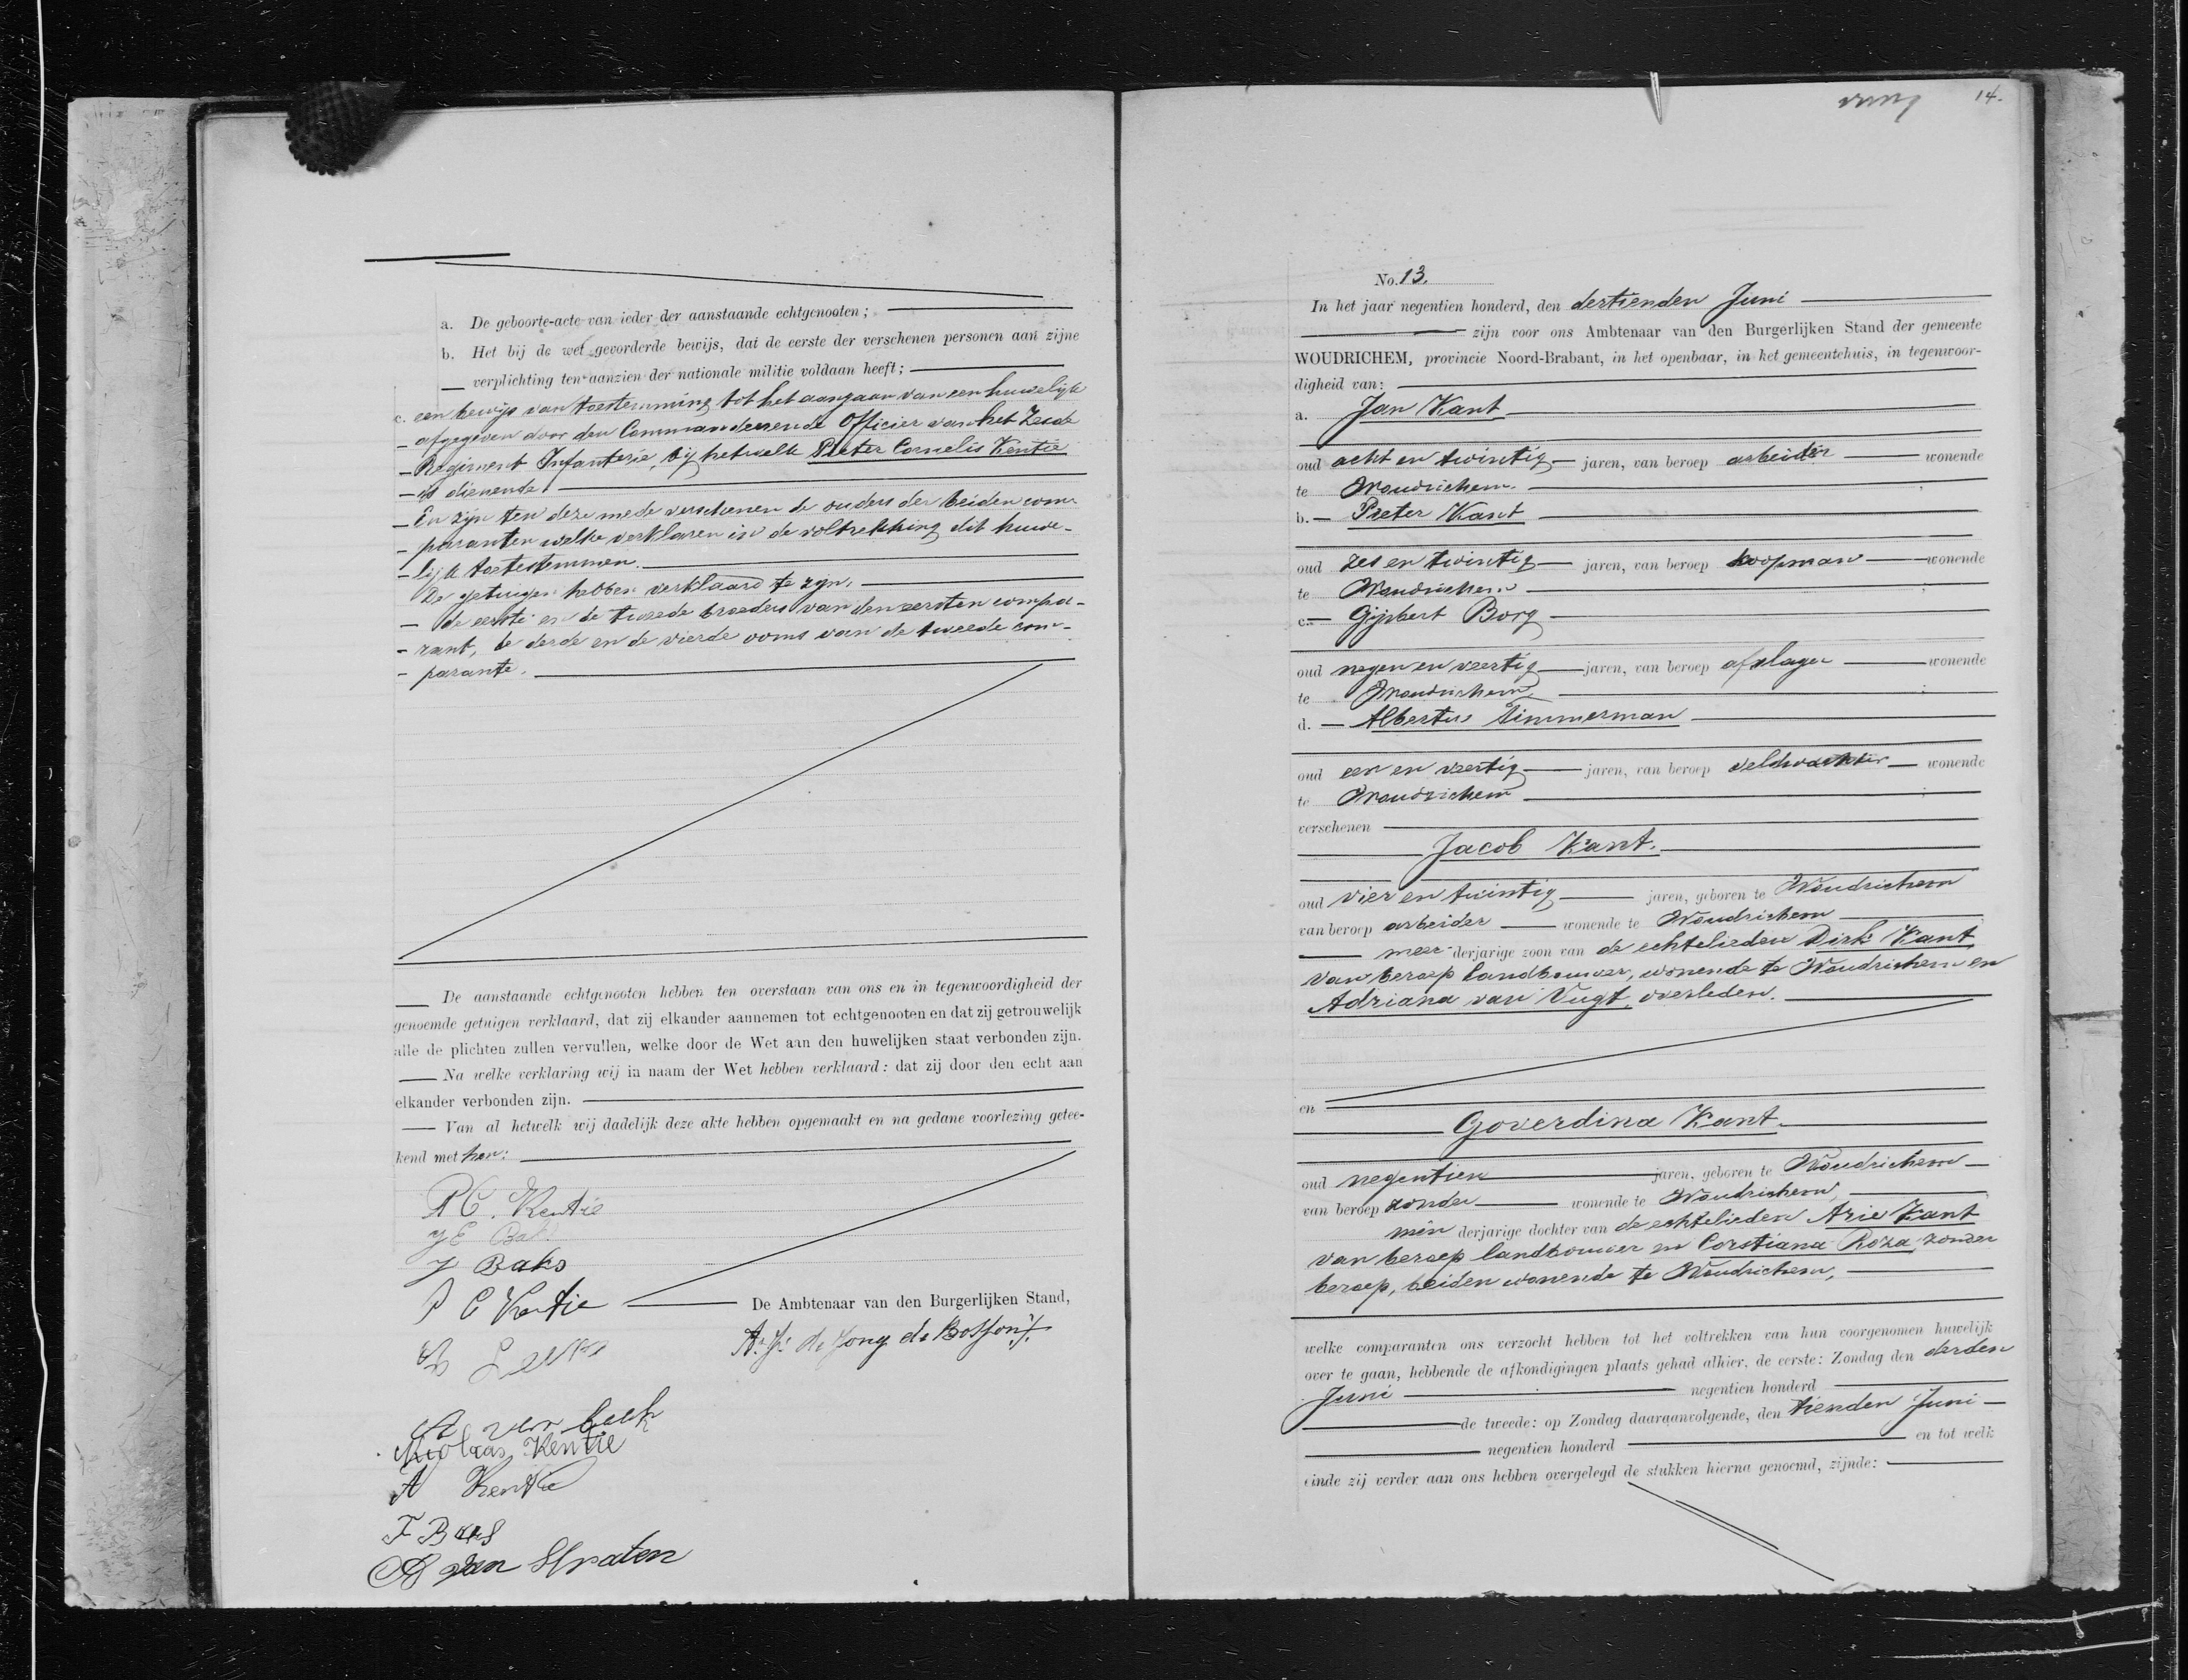 a. De geboorte-acte van ieder der aanstaande echtgenooten;
b. Het bij de wet gevorderde bewijs, dat de eerste der verschenen personen aan zijne
verplichting ten aanzien der nationale militie voldaan heeft;
c. een bewijs van toestemming tot het aangaan van een huwelijk
- afgegeven door den Commandeerende Officier van het Zesde
- Regiment Infanterie, bij hetwelk Pieter Cornelis Kentie
- is dienende.
- En zijn ten deze mede verschenen de ouders der beiden com-
- paranten welke verklaren in de voltrekking dit huwe-
- lijk toetestemmen.
De getuigen hebben verklaard te zijn,
- de eerste en de tweede broeders van den eersten compa-
- rant, de derde en de vierde ooms van de tweede com-
- parante.
De aanstaande echtgenooten hebben ten overstaan van ons en in tegenwoordigheid der
genoemde getuigen verklaard, dat zij elkander aannemen tot echtgenooten en dat zij getrouwelijk
alle de plichten zullen vervullen, welke door de Wet aan den huwelijken staat verbonden zijn.
Na welke verklaring wij in naam der Wet hebben verklaard: dat zij door den echt aan
elkander verbonden zijn.
Van al hetwelk wij dadelijk deze akte hebben opgemaakt en na gedane voorlezing getee-
kend met hen:
P C. Kentie
J E Baks
J Baks
P C Kentie
De Ambtenaar van den Burgerlijken Stand,
A. J. de Jong de
A van beek
Nicolaas Kentie
A Kentie
F Baks
A van Straten
14.
No. 13.
In het jaar negentien honderd, den dertienden Juni
zijn voor ons Ambtenaar van den Burgerlijken Stand der gemeente
WOUDRICHEM, provincie Noord-Brabant, in het openbaar, in het gemeentehuis, in tegenwoor-
digheid van:
a. Jan Kant
oud acht en twintig jaren, van beroep arbeider wonende
te Woudrichem.
b. Pieter Kant
oud zes en twintig jaren, van beroep koopman wonende
te Woudrichem
c. Gijsbert Borg
oud negen en veertig jaren, van beroep afslager wonende
te Woudrichem,
d. Albertus Timmerman
oud een en veertig jaren, van beroep veldwachter wonende
te Woudrichem
verschenen
Jacob Kant.
oud vier en twintig jaren, geboren te Woudrichem
van beroep arbeider wonende te Woudrichem
meer derjarige zoon van de echtelieden Dirk Kant,
van beroep landbouwer, wonende te Woudrichem en
Adriana van Vugt, overleden.
en
Goverdina Kant.
oud negentien jaren, geboren te Woudrichem
van beroep zonder wonende te Woudrichem,
min derjarige dochter van de echtelieden Arie Kant
van beroep landbouwer en Corstiana Roza, zonder
beroep, beiden wonende te Woudrichem,
welke comparanten ons verzocht hebben tot het voltrekken van hun voorgenomen huwelijk
over te gaan, hebbende de afkondigingen plaats gehad alhier, de eerste: Zondag den derden
Juni negentien honderd
de tweede: op Zondag daaraanvolgende, den tienden Juni
negentien honderd en tot welk
einde zij verder aan ons hebben overgelegd de stukken hierna genoemd, zijnde: